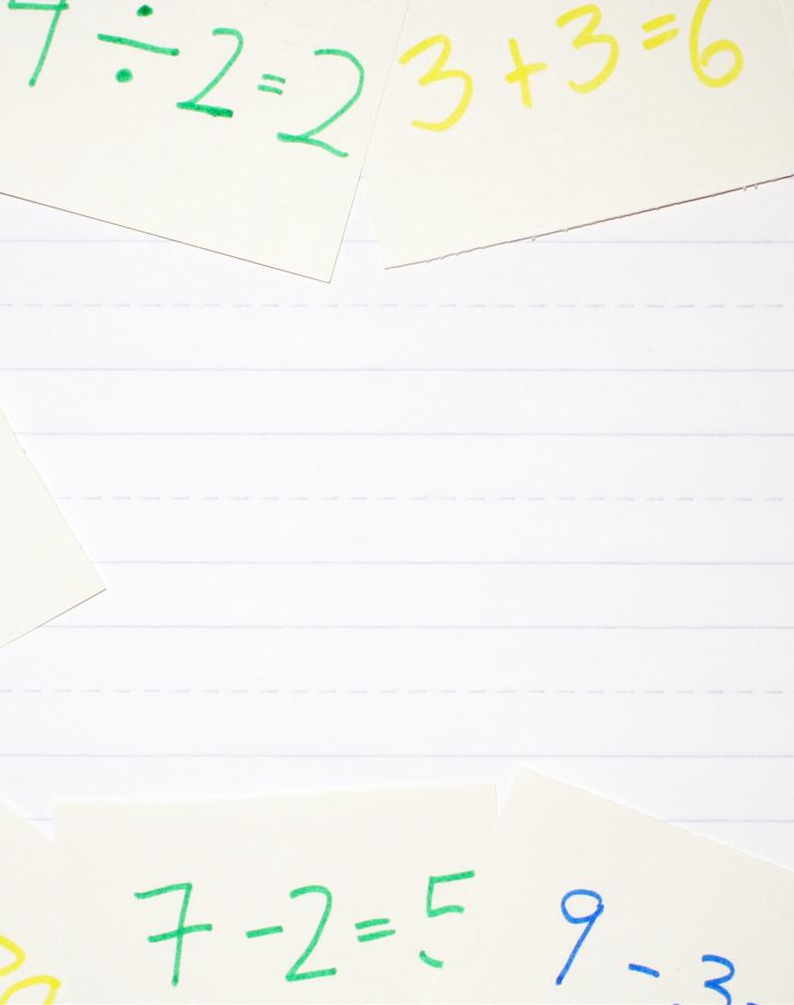 ÷ 2 = 2
3 + 3 = 6
7 - 2 = 5
9 - 3